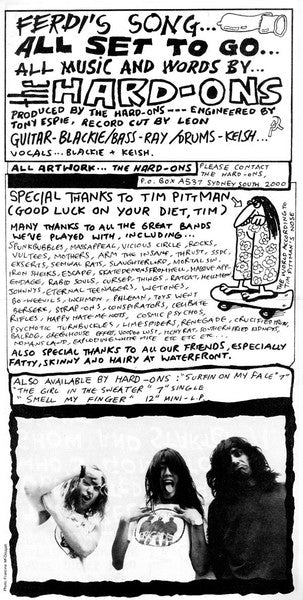 FERDI'S SONG...
ALL SET TO GO...
ALL MUSIC AND WORDS BY...
THE HARD-ONS
PRODUCED BY THE HARD-ONS --- ENGINEERED BY
TONY ESPIE, RECORD CUT BY LEON
GUITAR-BLACKIE/BASS-RAY/DRUMS-KEISH...
VOCALS... BLACKIE + KEISH.
ALL ARTWORK... THE HARD-ONS
PLEASE CONTACT
THE HARD-ONS,
P.O. BOX A537 SYDNEY SOUTH, 2000
SPECIAL THANKS TO TIM PITTMAN
(GOOD LUCK ON YOUR DIET, TIM)
MANY THANKS TO ALL THE GREAT BANDS
WE'VE PLAYED WITH, INCLUDING...
SPUNKBUBBLES, MASSAPPEAL, VICIOUS CIRCLE, ROCKS,
VULTEES, MOTHERS, ARM THE INSANE, THRUST, SSDC,
EXSERTS, SEMINAL RATS, SLAUGHTERLORD, MORTAL SIN,
IRON SHEIKS, ESCAPE, SKATEDEMONSFROMHELL, MASSIVE APP-
ENDAGE, RABID SOULS, CURSED, THINGS, RATCATS, HELLMEN
JOHNNYS, ETERNAL TEENAGERS, WETONES,
BO-WEEVILS, INCHMEN, PHLEMIN, TOYS WENT
BERSERK, STRAP-ONS, CONSPIRATORS, CELIBATE
RIFLES, HAPPY HATE-ME-NOTS, COSMIC PSYCHOS,
PSYCHOTIC TURNBUCKLES, LIME SPIDERS, RENEGADE, CRUCIFIED TRUTH,
BALROG, GREENHOUSE EFFECT, VOODOO LUST, ITCHY RAT, SOUTHERN FRIED KIDNEYS,
NO MANS LAND, EXPLODING WHITE MICE ETC ETC ETC...
ALSO SPECIAL THANKS TO ALL OUR FRIENDS, ESPECIALLY
FATTY, SKINNY AND HAIRY AT WATERFRONT.
THE WORLD ACCORDING TO
TIM PITTMAN'S NOSE
ALSO AVAILABLE BY HARD-ONS: "SURFIN ON MY FACE" 7"
"THE GIRL IN THE SWEATER" 7" SINGLE
"SMELL MY FINGER" 12" MINI-L.P.